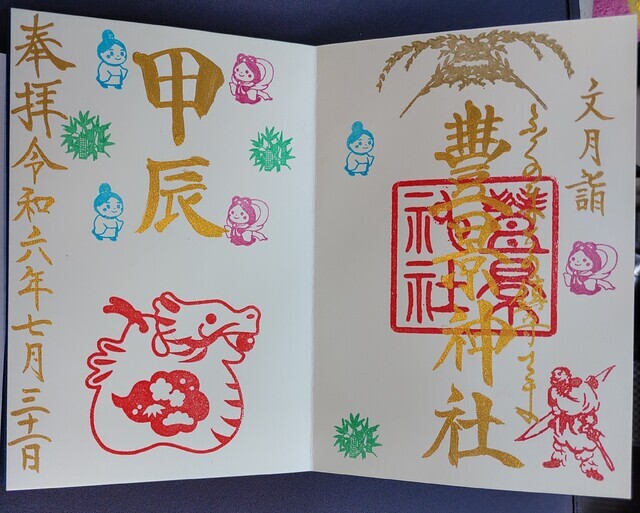 文月詣
豊景神社
豊景
神社
甲辰
奉拝令和六年七月三十一日